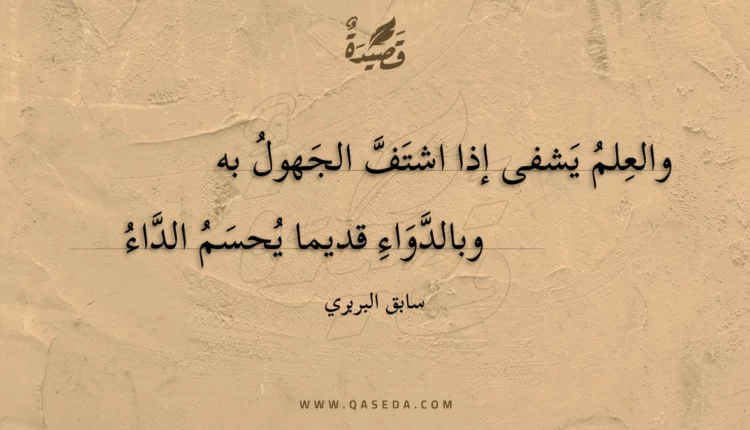 قَصِيْدَةٌ
والعِلمُ يَشفى إذا اشتَفَّ الجَهولُ به
وبالدَّوَاءِ قديما يُحسَمُ الدَّاءُ
سابق البربري
WWW.QASEDA.COM